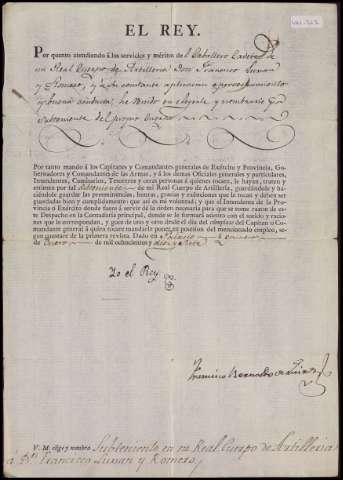 EL REY.
Por quanto atendiendo á los servicios y mérito de el Caballero Cadete de
mi Real Cuerpo de Artilleria Don Francisco Luxan
y Romero, y á su constante aplicacion aprovechamiento
y buena conducta; he venido en elegirle y nombrarle por
Subteniente del propio Cuerpo
Por tanto mando á los Capitanes y Comandantes generales de Exército y Provincia, Go-
bernadores y Comandantes de las Armas, y á los demas Oficiales generales y particulares,
Intendentes, Comisarios, Tesoreros y otras personas á quienes tocare, le hayan, traten y
estimen por tal Subteniente de mi Real Cuerpo de Artillería, guardándole y ha-
ciéndole guardar las preeminencias, honras, gracias y exênciones que le tocan y deben ser
guardadas bien y cumplidamente: que así es mi voluntad; y que el Intendente de la Provin-
cia ó Exército donde fuere á servir dé la orden necesaria para que se tome razon de es-
te Despacho en la Contaduría principal, donde se le formará asiento con el sueldo y racio-
nes que le correspondan, y goce de uno y otro desde el dia del cúmplase del Capitan ó Co-
mandante general á quien tocare mandarle poner en posesion del mencionado empleo, se-
gun constare de la primera revista. Dado en Palacio á
de Enero de mil ochocientos y diez y siete
Yo el Rey
Francisco Bernaldo de Quirós
V. M. elige y nombra Subteniente en su Real Cuerpo de Artilleria
á Dn Francisco Luxan y Romero